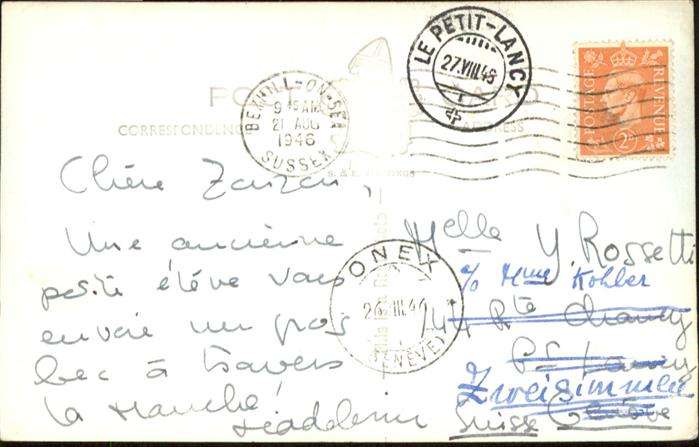 LE PETIT-LANCY
27.VIII.46
BEXHILL-ON-SEA
9 15 AM
21 AUG
1946
SUSSEX
POST CARD
CORRESPONDENCE ADDRESS
POSTAGE REVENUE
2D
Chère Zaizai,
Une ancienne
petite élève vous
envoie un gros
bec à travers
la Manche,
Madeleine
ONEX
(GENÈVE)
Melle Y. Rossetti
c/o Mme Kohler
144 Rte Chancy
Pt Lancy
Zweisimmen
Suisse Genève